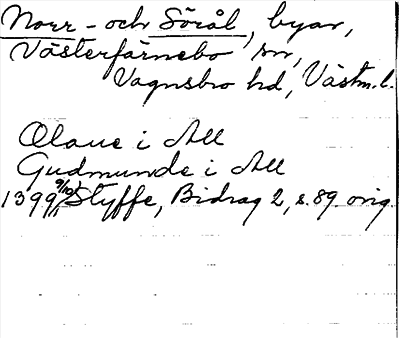 Norr- och Sörål, byar,
Västerfärnebo sn,
Vagnsbro hd, Västm.l.
Olaue i All
Gudmunde i All
1399 9/10, Styffe, Bidrag 2, s. 89 orig.